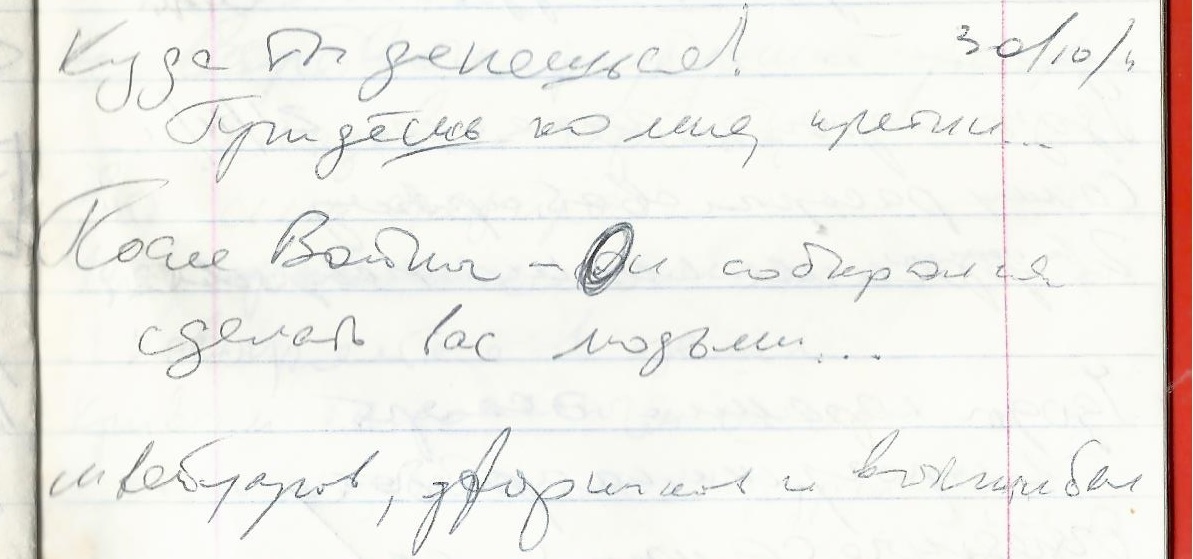 Куда ты денешься! 30/10/
Придёшь ко мне, кретин...
После Войны - Он собирался
сделать вас людьми...
швейцаров, дворников и